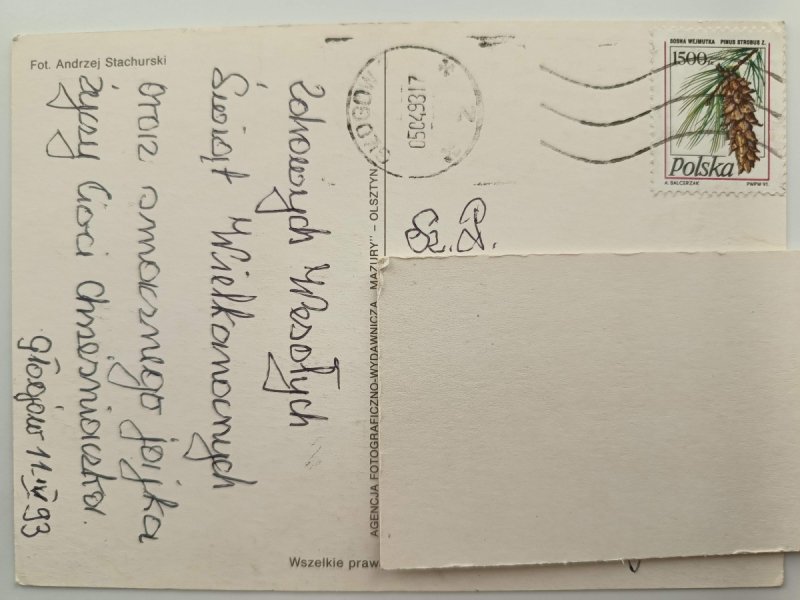 Fot. Andrzej Stachurski
Zdrowych Wesołych
Świąt Wielkanocnych
oraz smacznego jajka
życzy Cioci Chrześniaczka.
Głogów 11.IV 93
AGENCJA FOTOGRAFICZNO-WYDAWNICZA „MAZURY” – OLSZTYN
Wszelkie praw
GŁOGÓW 2
05049317
SOSNA WEJMUTKA PINUS STROBUS Z.
1500zł
Polska
A. BALCERZAK PWPW
Sz. P.